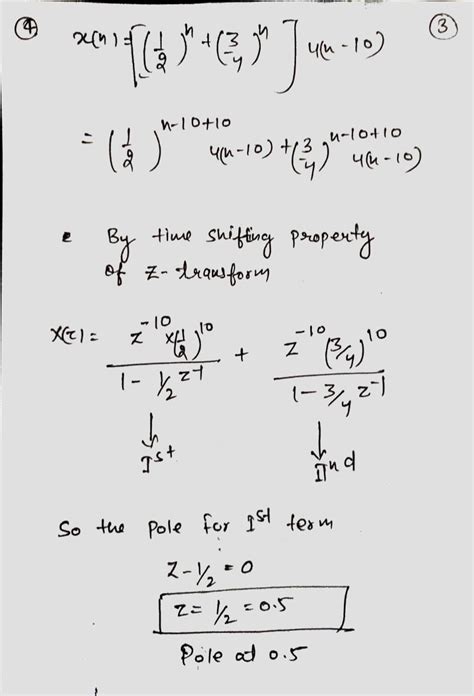 ④ x(n) = [(1/2)^n + (3/4)^n] u(n-10) ③
= (1/2)^{n-10+10} u(n-10) + (3/4)^{n-10+10} u(n-10)
By time shifting property
of z-transform
X(z) = z^{-10} × (1/2)^{10} / (1 - 1/2 z^{-1}) + z^{-10} (3/4)^{10} / (1 - 3/4 z^{-1})
↓ ↓
Ist IInd
So the pole for Ist term
z - 1/2 = 0
z = 1/2 = 0.5
Pole at 0.5